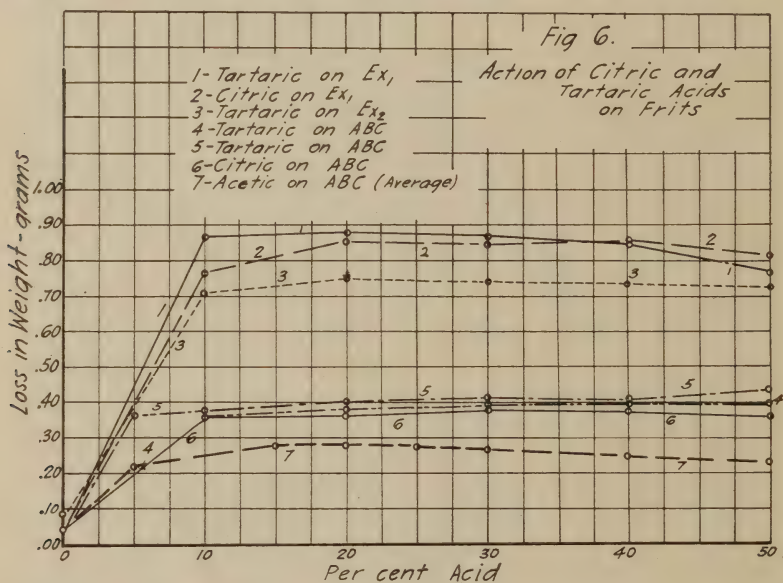 Fig 6.
Action of Citric and
Tartaric Acids
on Frits
1-Tartaric on Ex₁
2-Citric on Ex₁
3-Tartaric on Ex₂
4-Tartaric on ABC
5-Tartaric on ABC
6-Citric on ABC
7-Acetic on ABC (Average)
Loss in Weight-grams
1.00
.90
.80
.70
.60
.50
.40
.30
.20
.10
.00
1
1
2
2
2
3
3
1
3
5
5
5
4
4
6
6
6
7
7
0
10
20
30
40
50
Per cent Acid